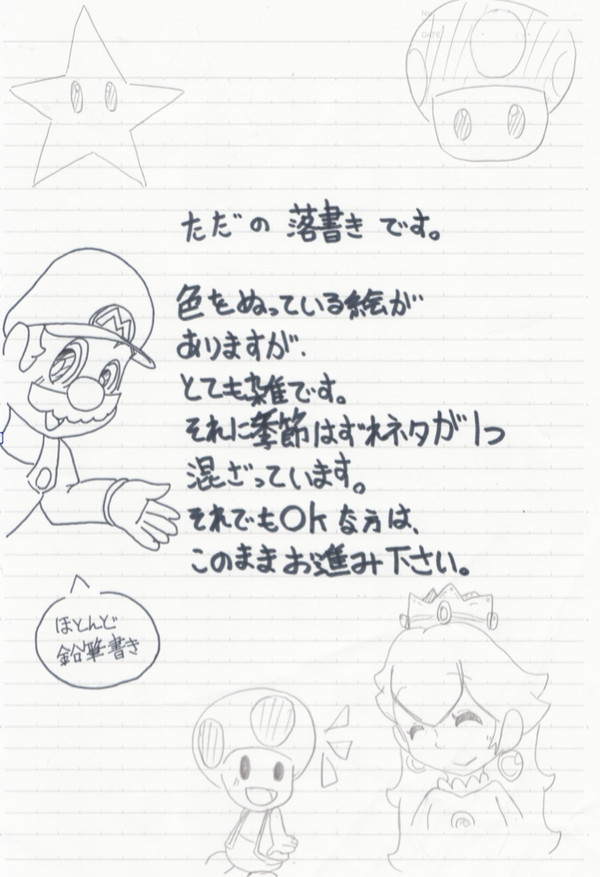 ただの 落書き です。
色をぬっている絵が
ありますが、
とても雑です。
それに季節はずれネタが1つ
混ざっています。
それでもOKな方は、
このままお進み下さい。
ほとんど
鉛筆書き